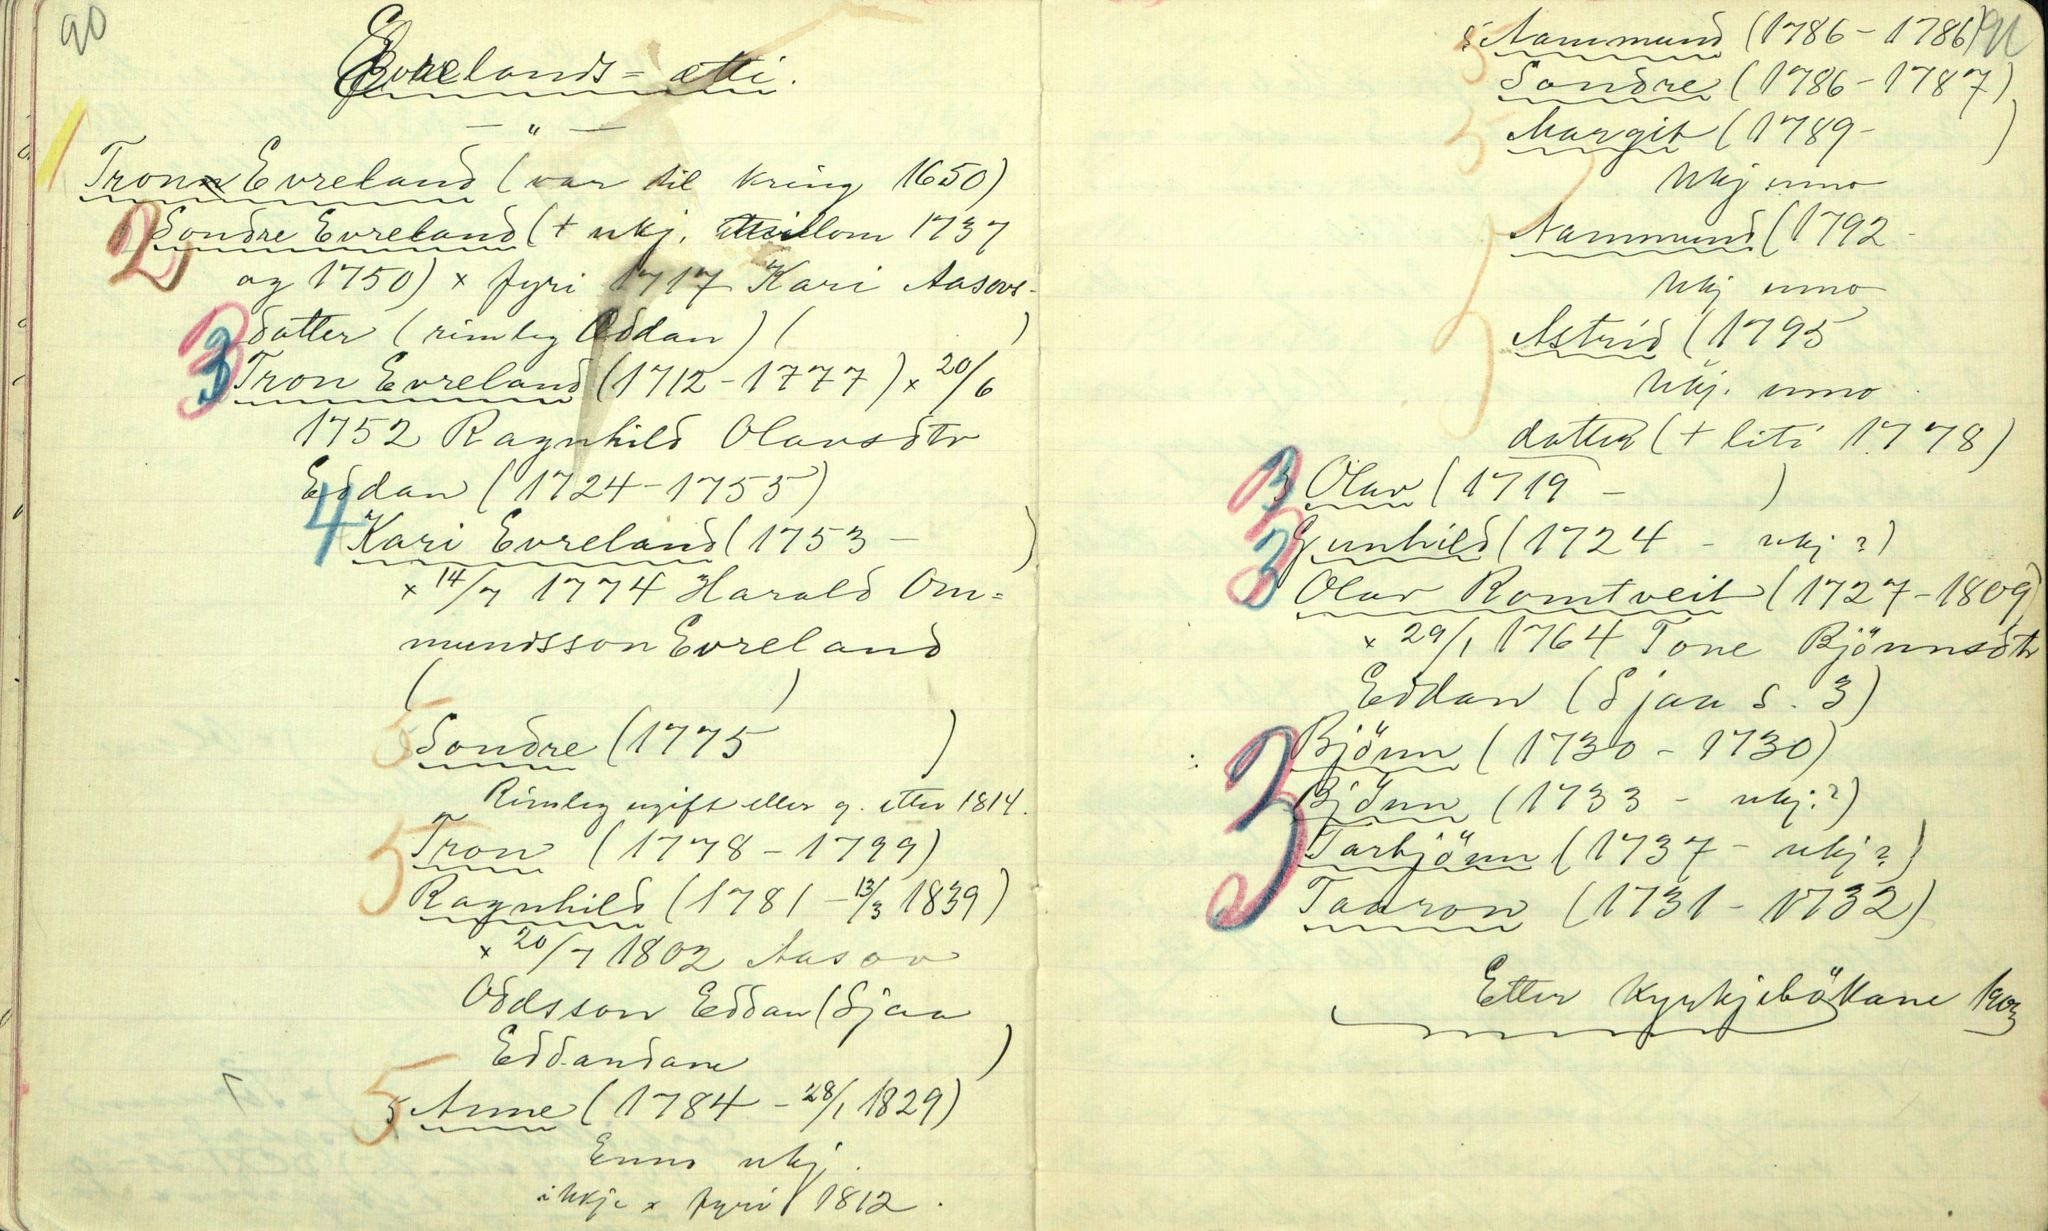 90
Evrelands=ætti.
— " —
1
Tron Evreland (var til kring 1650)
2 Sondre Evreland (+ ukj. millom 1737
og 1750) × fyri 1717 Kari Aasovs-
datter (rimleg Eddan) ( )
3 Tron Evreland (1712-1777) × 20/6
1752 Ragnhild Olavsdtr
Eddan (1724-1755)
4 Kari Evreland (1753 - )
× 14/7 1774 Harald Om=
mundsson Evreland
( )
5 Sondre (1775 )
Rimleg ugift eller g. etter 1814.
5 Tron (1778 - 1799)
Ragnhild (1781 - 13/3 1839)
× 20/7 1802 Aasov
Oddsson Eddan (Sjaa
Eddandane )
5 5 Anne (1784 - 28/1 1829)
Enno ukj.
ikkje × fyri 1812.
91
5 Aammund (1786 - 1786)
Sondre (1786 - 1787)
5 Margit (1789 - )
Ukj enno
5 Aammund (1792 -
Ukj enno
5 Astrid (1795
Ukj. enno.
datter (+ liti 1778)
3 Olav (1719 - )
3 Gunhild (1724 - ukj?)
3 Olav Romtveit (1727-1809)
× 29/1 1764 Tone Björnnsdtr
Eddan (Sjaa S. 3)
3 Björnn (1730 - 1730)
Björnn (1733 - ukj.?)
Tarbjörnn (1737 - ukj?)
Taaron (1731 - 1732)
Etter Kyrkjebökane 1903